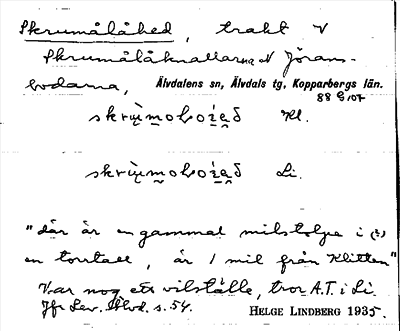 Skrumålåhed, trakt V
Skrumålåknallarna N Jörans-
bodarna, Älvdalens sn, Älvdals tg, Kopparbergs län.
Kl.
Li.
"där är en gammal milstolpe i (?)
en torrtall, är 1 mil från Klitten"
Var nog ett vilställe, tror A.T. i Li.
Jfr Lev. Älvd. s. 54. HELGE LINDBERG 1935.